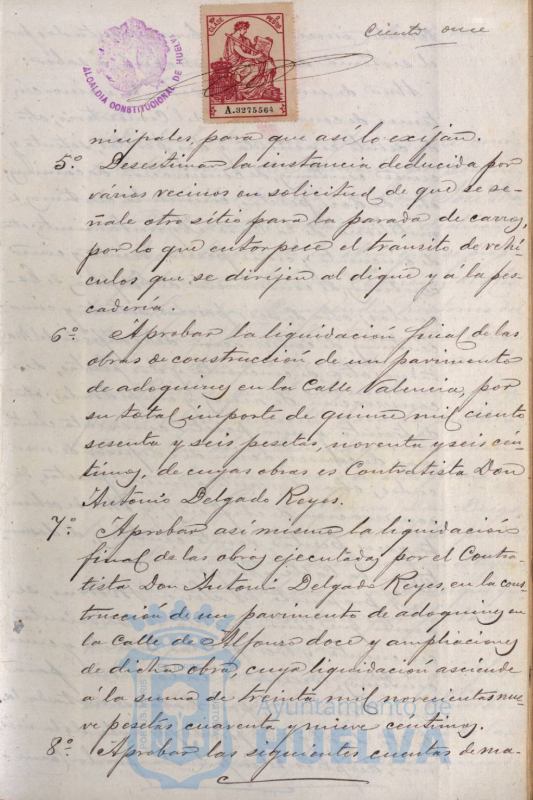 Ciento once
ALCALDIA CONSTITUCIONAL DE HUELVA
A.3275564
nicipales, para que así lo exijan.
5.º Desestimar la instancia deducida por
vários vecinos en solicitud de que se se-
ñale otro sitio para la parada de carros,
por lo que entorpece el tránsito de vehí-
culos que se dirijen al dique y á la pes-
cadería.
6.º Aprobar la liquidación final de las
obras de construcción de un pavimento
de adoquines en la Calle Valencia, por
su total importe de quince mil ciento
sesenta y seis pesetas, noventa y seis cén-
timos, de cuyas obras es Contratista Don
Antonio Delgado Reyes.
7.º Aprobar asi mismo la liquidación
final de las obras ejecutadas por el Contra-
tista Don Antonio Delgado Reyes, en la cons-
trucción de un pavimento de adoquines en
la Calle de Alfonso doce y ampliaciones
de dicha obra, cuya liquidación asciende
á la suma de treinta mil novecientas nue-
ve pesetas cuarenta y nueve céntimos.
8.º Aprobar las siguientes cuentas de ma-
Ayuntamiento de
HUELVA